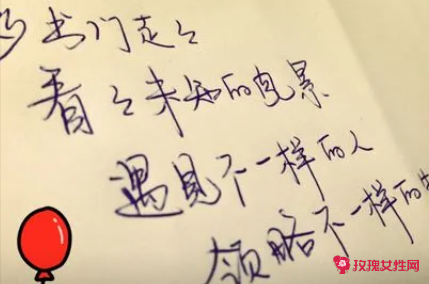 出门走走
看看未知的光景
遇见不一样的人
领略不一样的
玫瑰女性网